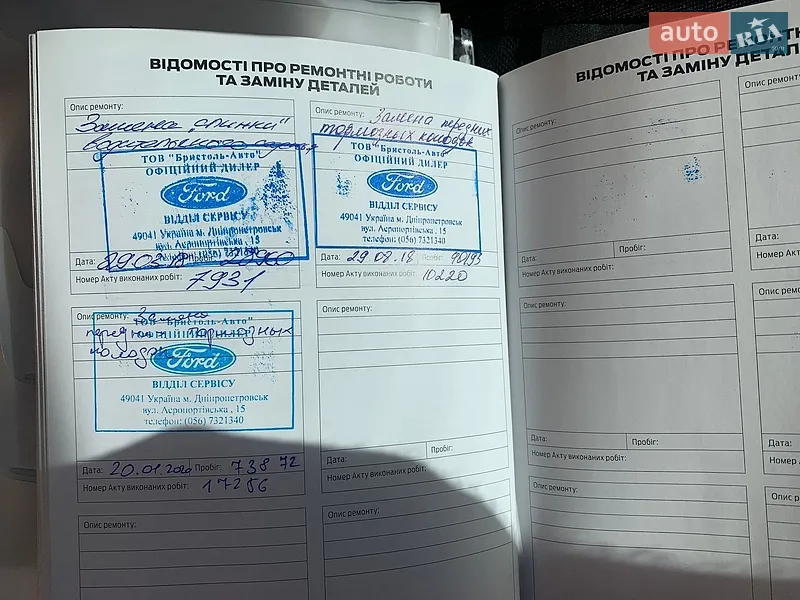 auto RIA
.com
ВІДОМОСТІ ПРО РЕМОНТНІ РОБОТИ
ТА ЗАМІНУ ДЕТАЛЕЙ
Опис ремонту:
Замена "спинки"
водительского
ТОВ "Бристоль-Авто"
ОФІЦІЙНИЙ ДИЛЕР
Ford
ВІДДІЛ СЕРВІСУ
49041 Україна м. Дніпропетровськ
вул. Аеропортівська , 15
телефон: (056) 7321340
Дата: Пробіг:
Номер Акту виконаних робіт: 7931
Опис ремонту: Замена передних
тормозных колодок
ТОВ "Бристоль-Авто"
ОФІЦІЙНИЙ ДИЛЕР
Ford
ВІДДІЛ СЕРВІСУ
49041 Україна м. Дніпропетровськ
вул. Аеропортівська , 15
телефон: (056) 7321340
Дата: 29.08.18 Пробіг:
Номер Акту виконаних робіт: 10220
Опис ремонту: Замена
передних тормозных
колодок
ТОВ "Бристоль-Авто"
ОФІЦІЙНИЙ ДИЛЕР
Ford
ВІДДІЛ СЕРВІСУ
49041 Україна м. Дніпропетровськ
вул. Аеропортівська , 15
телефон: (056) 7321340
Дата: 20.01.2020 Пробіг: 73872
Номер Акту виконаних робіт: 17256
Опис ремонту:
Дата: Пробіг:
Номер Акту виконаних робіт:
Опис ремонту:
Опис ремонту:
ВІДОМОСТІ ПРО
ТА ЗАМІНУ
Опис ремонту:
Дата: Пробіг:
Номер Акту виконаних робіт:
Опис
Дата:
Номер
Опис ремонту:
Дата: Пробіг:
Номер Акту виконаних робіт:
Опис
Дата:
Номер
Опис ремонту:
Опис